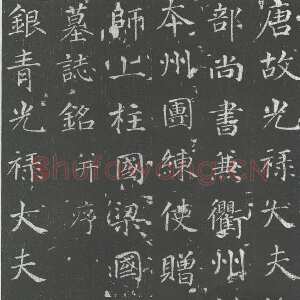 唐故光禄大夫
部尚書兼衢州
本州團練使贈
師上柱國梁國
墓誌銘并序
銀青光禄大夫
Shufawang.CN